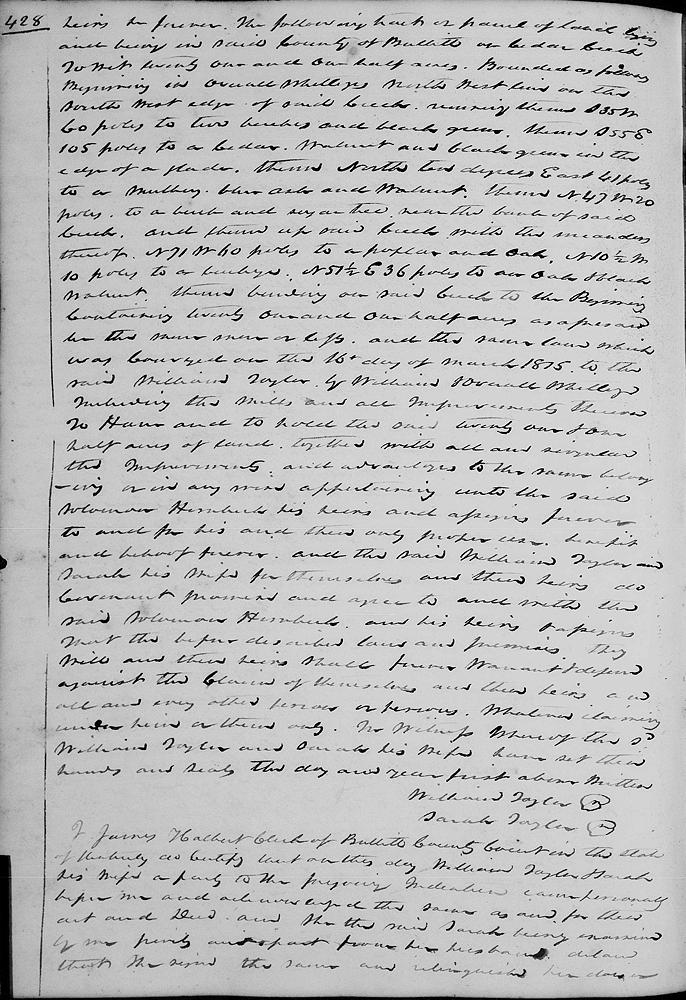 428
heirs &c forever. The following tract or parcel of land lying
and being in said County of Bullitt on Cedar Creek
To Wit twenty one and one half acres. Bounded as follows
Beginning in Ovrall Whelleges North West line on the
South West edge of said Creek. running thence S35W
60 poles to two beeches and black gum. thence S55E
105 poles to a Cedar. Walnut and black gum in the
edge of a glade. thence North ten degrees East 41 poles
to a Mulbery. blue ash and Walnut. thence N47W20
poles. to a beech and sugar tree, near the bank of said
Creek. and thence up said Creek with the meanders
thereof. N71W60 poles to a poplar and Oak, N10½W
10 poles to a buckeye. N51½E36 poles to an Oak & black
Walnut. thence binding on said Creek to the Beginning
Containing twenty one and one half acres as aforesaid
be the same more or less. and the same land which
was Conveyed on the 16t day of March 1815 to the
said William Taylor by William Ovrall Whellege
Including the Mills and all Improvements thereon
To Have and to hold the said twenty one & one
half acres of land. together with all and seventur
the Improvements. and advantages to the same belong
-ing or in any wise appertaining unto the said
Solomon Hornbeck his heirs and assigns forever
to and for his and their only proper use. benefit
and behoof forever. and the said William Taylor and
Sarah his Wife for themselves and their heirs do
Covenant promise and agree to and with the
said Solomon Hornbeck. and his heirs & assigns
that the before described land and premises they
Will and their heirs shall forever Warrant & defend
against the Claim of themselves and their heirs and
all and every other person or persons. Whatever claiming
under him or them only. In Witness Whereof the sd
William Taylor and Sarah his Wife have set their
hands and seals the day and year first above Written
William Taylor
Sarah Taylor
I James Halbert Clerk of Bullitt County Court in the state
of Kentucky do Certify that on this day William Taylor & Sarah
his Wife a party to the foregoing Indenture came personally
before me and acknowledged the same as and for their
act and Deed. and She the said Sarah being examined
by me privily and apart from her husband. declared
that She signed the same and relinquished her dower